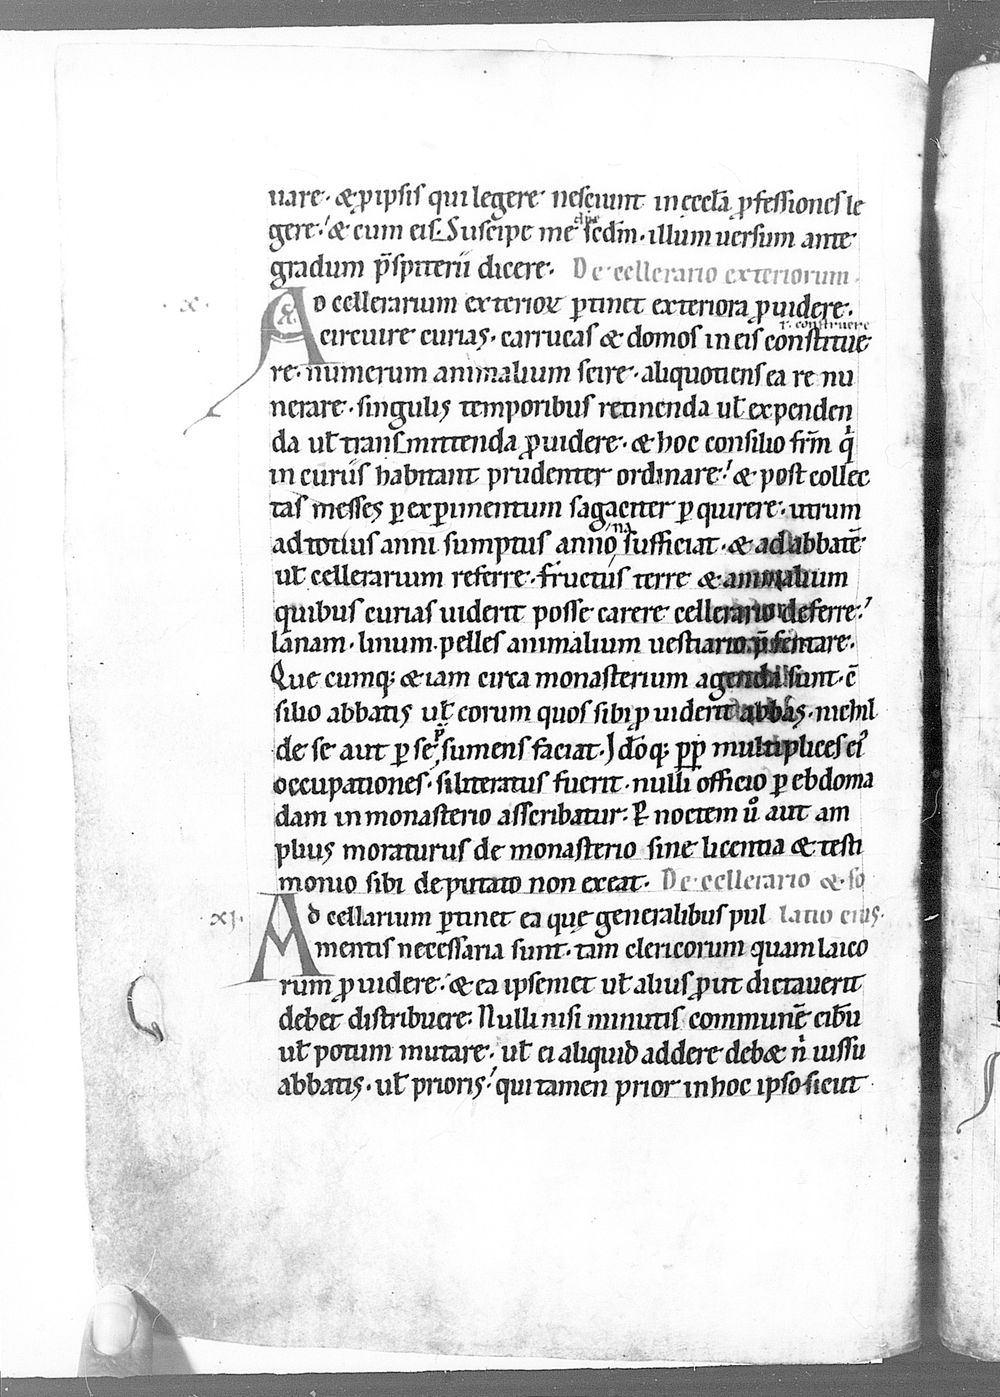 uare· & p ipsis qui legere nesciunt in eccl̄a p̱fessiones le
gere·' & cum eis Suscipe me dn̄e sc̄dm· illum uersum ante
gradum p̄sƥiterii dicere· De cellerario exteriorum·
·x·
Ad cellerarium exteriorꝝ ꝑtinet exteriora ꝓuidere·
circuire curias· carrucas & domos in eis constitue
ł construere
re· numerum animalium scire· aliquotiens ea re nu
nerare· singulis temporibus retinenda ut̄ expenden
da ut̄ transmittenda ꝓuidere· & hoc consilio fr̄m q̇
in curiis habitant prudenter ordinare·' & post collec
tas messes ꝑ experimentum sagaciter ꝑquirere· utrum
ad totius anni sumptus annona sufficiat· & ad abbatē
ut̄ cellerarium referre· fructus terre & animalium
quibus curias uiderit posse carere cellerario deferre·'
lanam· linum· pelles animalium uestiario p̄sentare·
Que cumq; & iam circa monasterium agenda sunt· c̄
silio abbatis ut̄ eorum quos sibi ꝓuiderit abbas· nichil
de se aut ꝑ se p̱sumens faciat· Idōq; pp̄ multiplices ei'
occupationes· si literatus fuerit· nulli officio ꝑ ebdoma
dam in monasterio asscribatur· Ꝑ noctem ů aut am
plius moraturus de monasterio sine licentia & testi
monio sibi deputato non exeat· De cellerario & so
·xj·
Ad cellarium ꝑtinet ea que generalibus pul latio eius·
mentis necessaria sunt· tam clericorum quam laico
rum ꝓuidere·' & ea ipsemet ut̄ alius ꝓut dictauerit
debet distribuere· Nulli nisi minutis communē cibū
ut̄ potum mutare·' ut̄ ei aliquid addere deb& ṅ iussu
abbatis· ut̄ prioris·' qui tamen prior in hoc ipso sicut